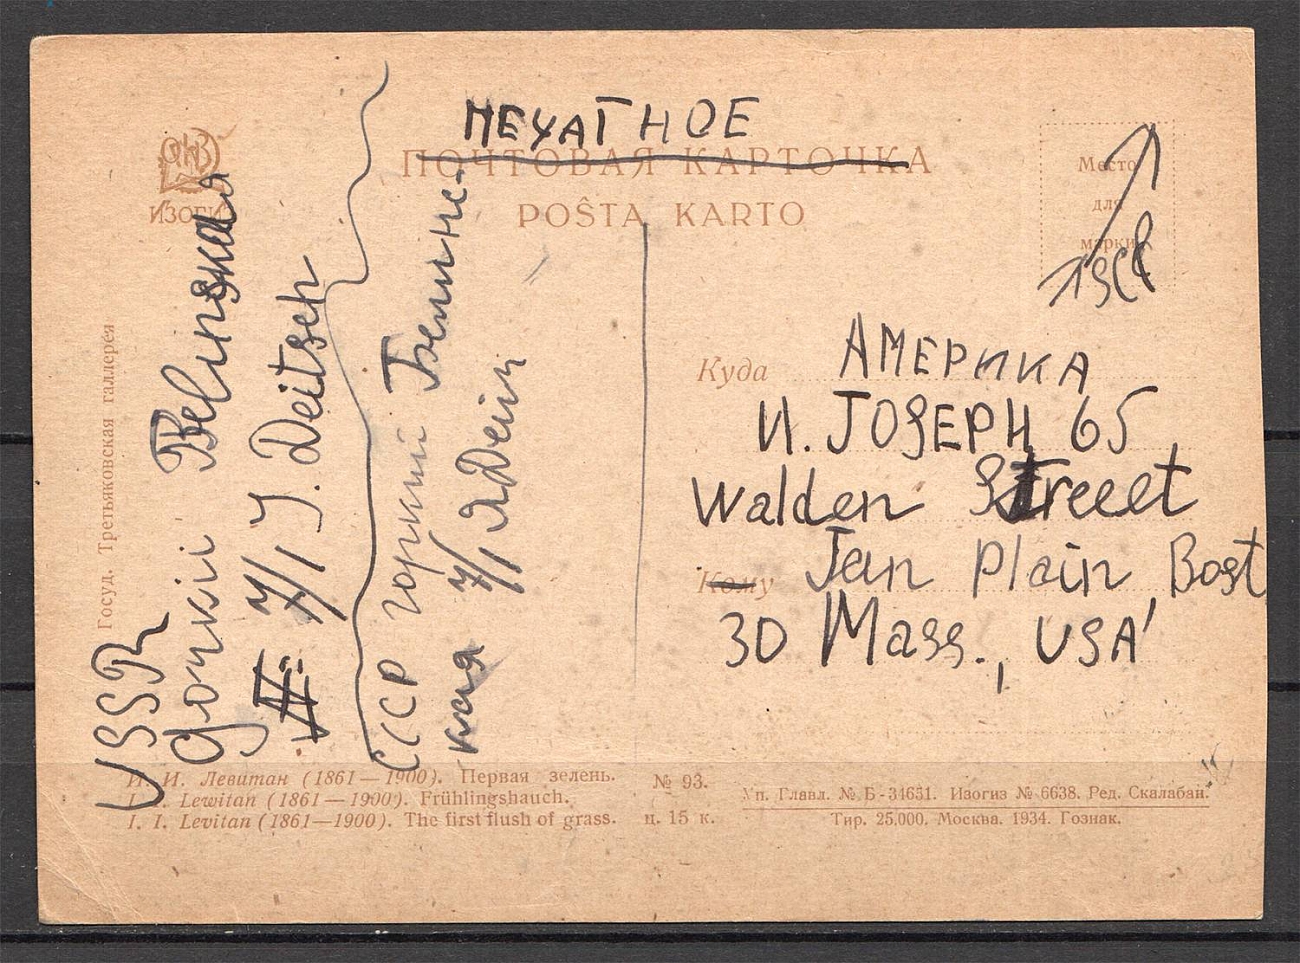 ПЕЧАТНОЕ
ПОЧТОВАЯ КАРТОЧКА
POŜTA KARTO
ИЗОГИЗ
Место
для
марки
Куда
АМЕРИКА
И. JOSEPH 65
Walden Streeet
Кому
Jan Plain Bost
30 Mass., USA
Госуд. Третьяковская галлерея
USSR
Gorkii Belinskaja
7/1 J. Deitsch
СССР Горкий Белинс-
кая 7/1 Я Дейч
И. И. Левитан (1861—1900). Первая зелень.
I. I. Lewitan (1861—1900). Frühlingshauch.
I. I. Levitan (1861—1900). The first flush of grass.
№ 93.
ц. 15 к.
Уп. Главл. № Б-34651. Изогиз № 6638. Ред. Скалабан.
Тир. 25.000. Москва. 1934. Гознак.